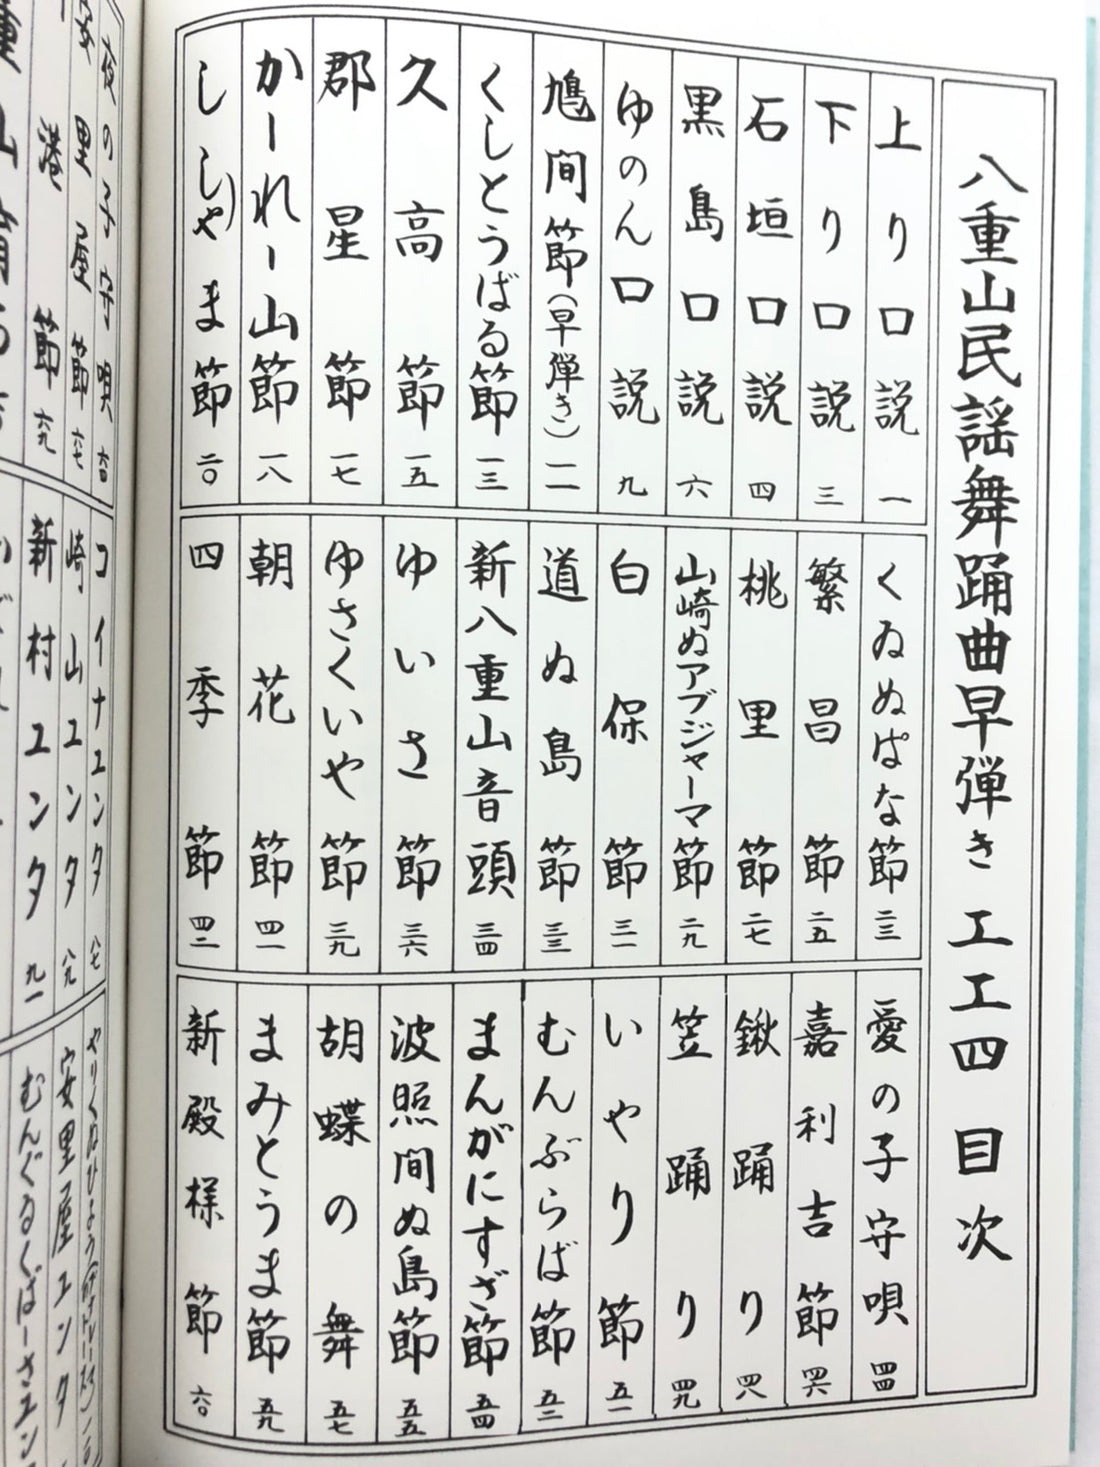 八重山民謡舞踊曲早弾き 工工四 目次
上り口説 一
下り口説 三
石垣口説 四
黒島口説 六
ゆのん口説 九
鳩間節(早弾き) 一一
くしとうばる節 一三
久高節 一五
郡星節 一七
かーれー山節 一八
ししゃま節 二〇
くゐぬぱな節 二三
繁昌節 二五
桃里節 二七
山崎ぬアブジャーマ節 二九
白保節 三一
道ぬ島節 三三
新八重山音頭 三四
ゆいさ節 三六
ゆさくいや節 三九
朝花節 四一
四季節 四二
愛の子守唄 四四
嘉利吉節 四六
鍬踊り 四八
笠踊り 四九
いやり節 五一
むんぶらば節 五三
まんがにすざ節 五四
波照間ぬ島節 五五
胡蝶の舞 五七
まみとうま節 五九
新殿様節 六〇
夜の子守唄
里屋節 六七
港節 六九
コイナユンタ 八七
崎山ユンタ 八九
新村ユンタ 九一
安里屋ユンタ
むんぐるくばーさ